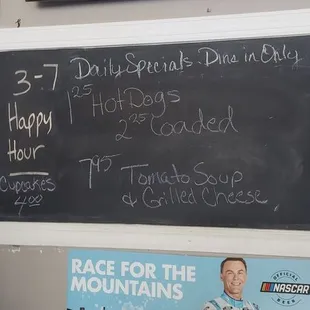 3-7
Happy
Hour
Cupcakes
4.00
Daily Specials. Dine in Only
1.25 Hot Dogs
2.25 Loaded
7.95 Tomato Soup
& Grilled Cheese
RACE FOR THE
MOUNTAINS
OFFICIAL
NASCAR
BEER